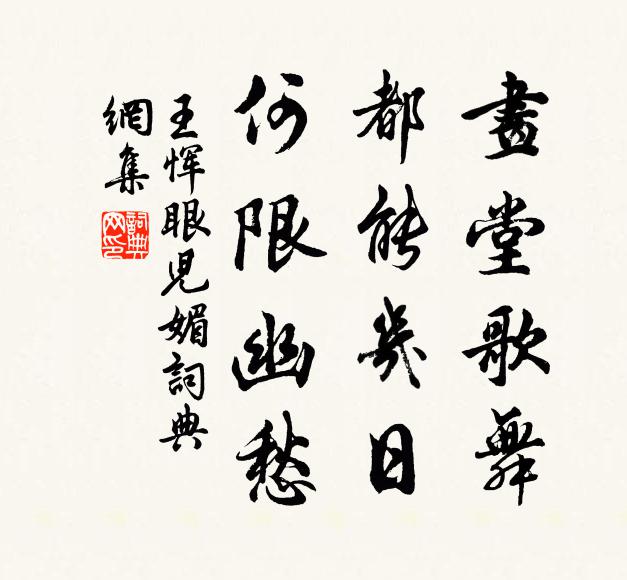 畫堂歌舞
都能幾日
何限幽愁
王惲眼兒媚詞典
網集
詞典網印